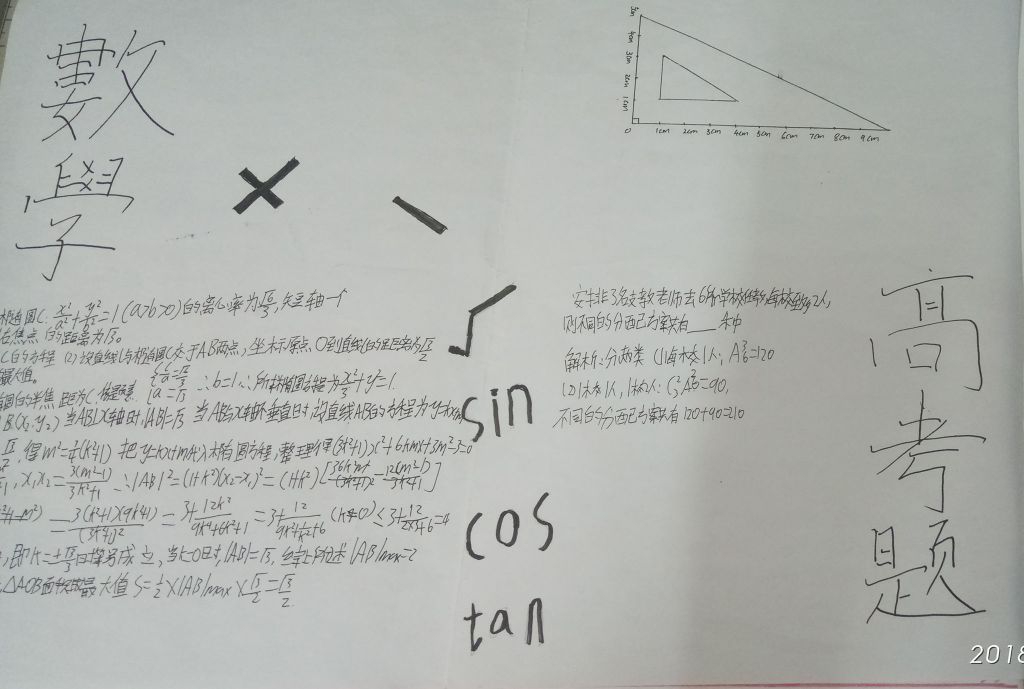 數學
5cm
4cm
3cm
2cm
1cm
0 1cm 2cm 3cm 4cm 5cm 6cm 7cm 8cm 9cm
×
√
sin
cos
tan
椭圆C: x²/a²+y²/b²=1(a>b>0)的离心率为√6/3,短轴一个
右焦点的距离为√3.
C的方程 (2)设直线l与椭圆C交于AB两点,坐标原点O到直线l的距离为√3/2
最大值。
圆的半焦距为C,依题意 {c/a=√6/3 a=√3 ∴b=1∴所求椭圆方程为x²/3+y²=1.
B(x₂,y₂)当AB⊥X轴时,|AB|=√3 当AB与X轴不垂直时,设直线AB的方程为y=kx+m
得m²=3/4(k²+1) 把y=kx+m代入椭圆方程,整理得(3k²+1)x²+6kmx+3m²-3=0
x₁x₂=3(m²-1)/3k²+1 ∴|AB|²=(1+k²)(x₂-x₁)²=(1+k²)[36k²m²/(3k²+1)²-12(m²-1)/3k²+1]
3(k²+1)(9k²+1)/(3k²+1)²=3+12k²/9k⁴+6k²+1=3+12/9k²+1/k²+6(k≠0)≤3+12/2×3+6=4
,即k=±√3/3时等号成立,当k=0时,|AB|=√3,综上所述|AB|max=2
△AOB面积取最大值S=1/2×|AB|max×√3/2=√3/2
安排3名支教老师去6所学校任教,每校至多2人,
则不同的分配方案共有____种
解析:分两类 (1)每校1人:A₆³=120
(2)1校1人,1校2人:C₃²A₆²=90,
不同的分配方案共有120+90=210
高考题
2018